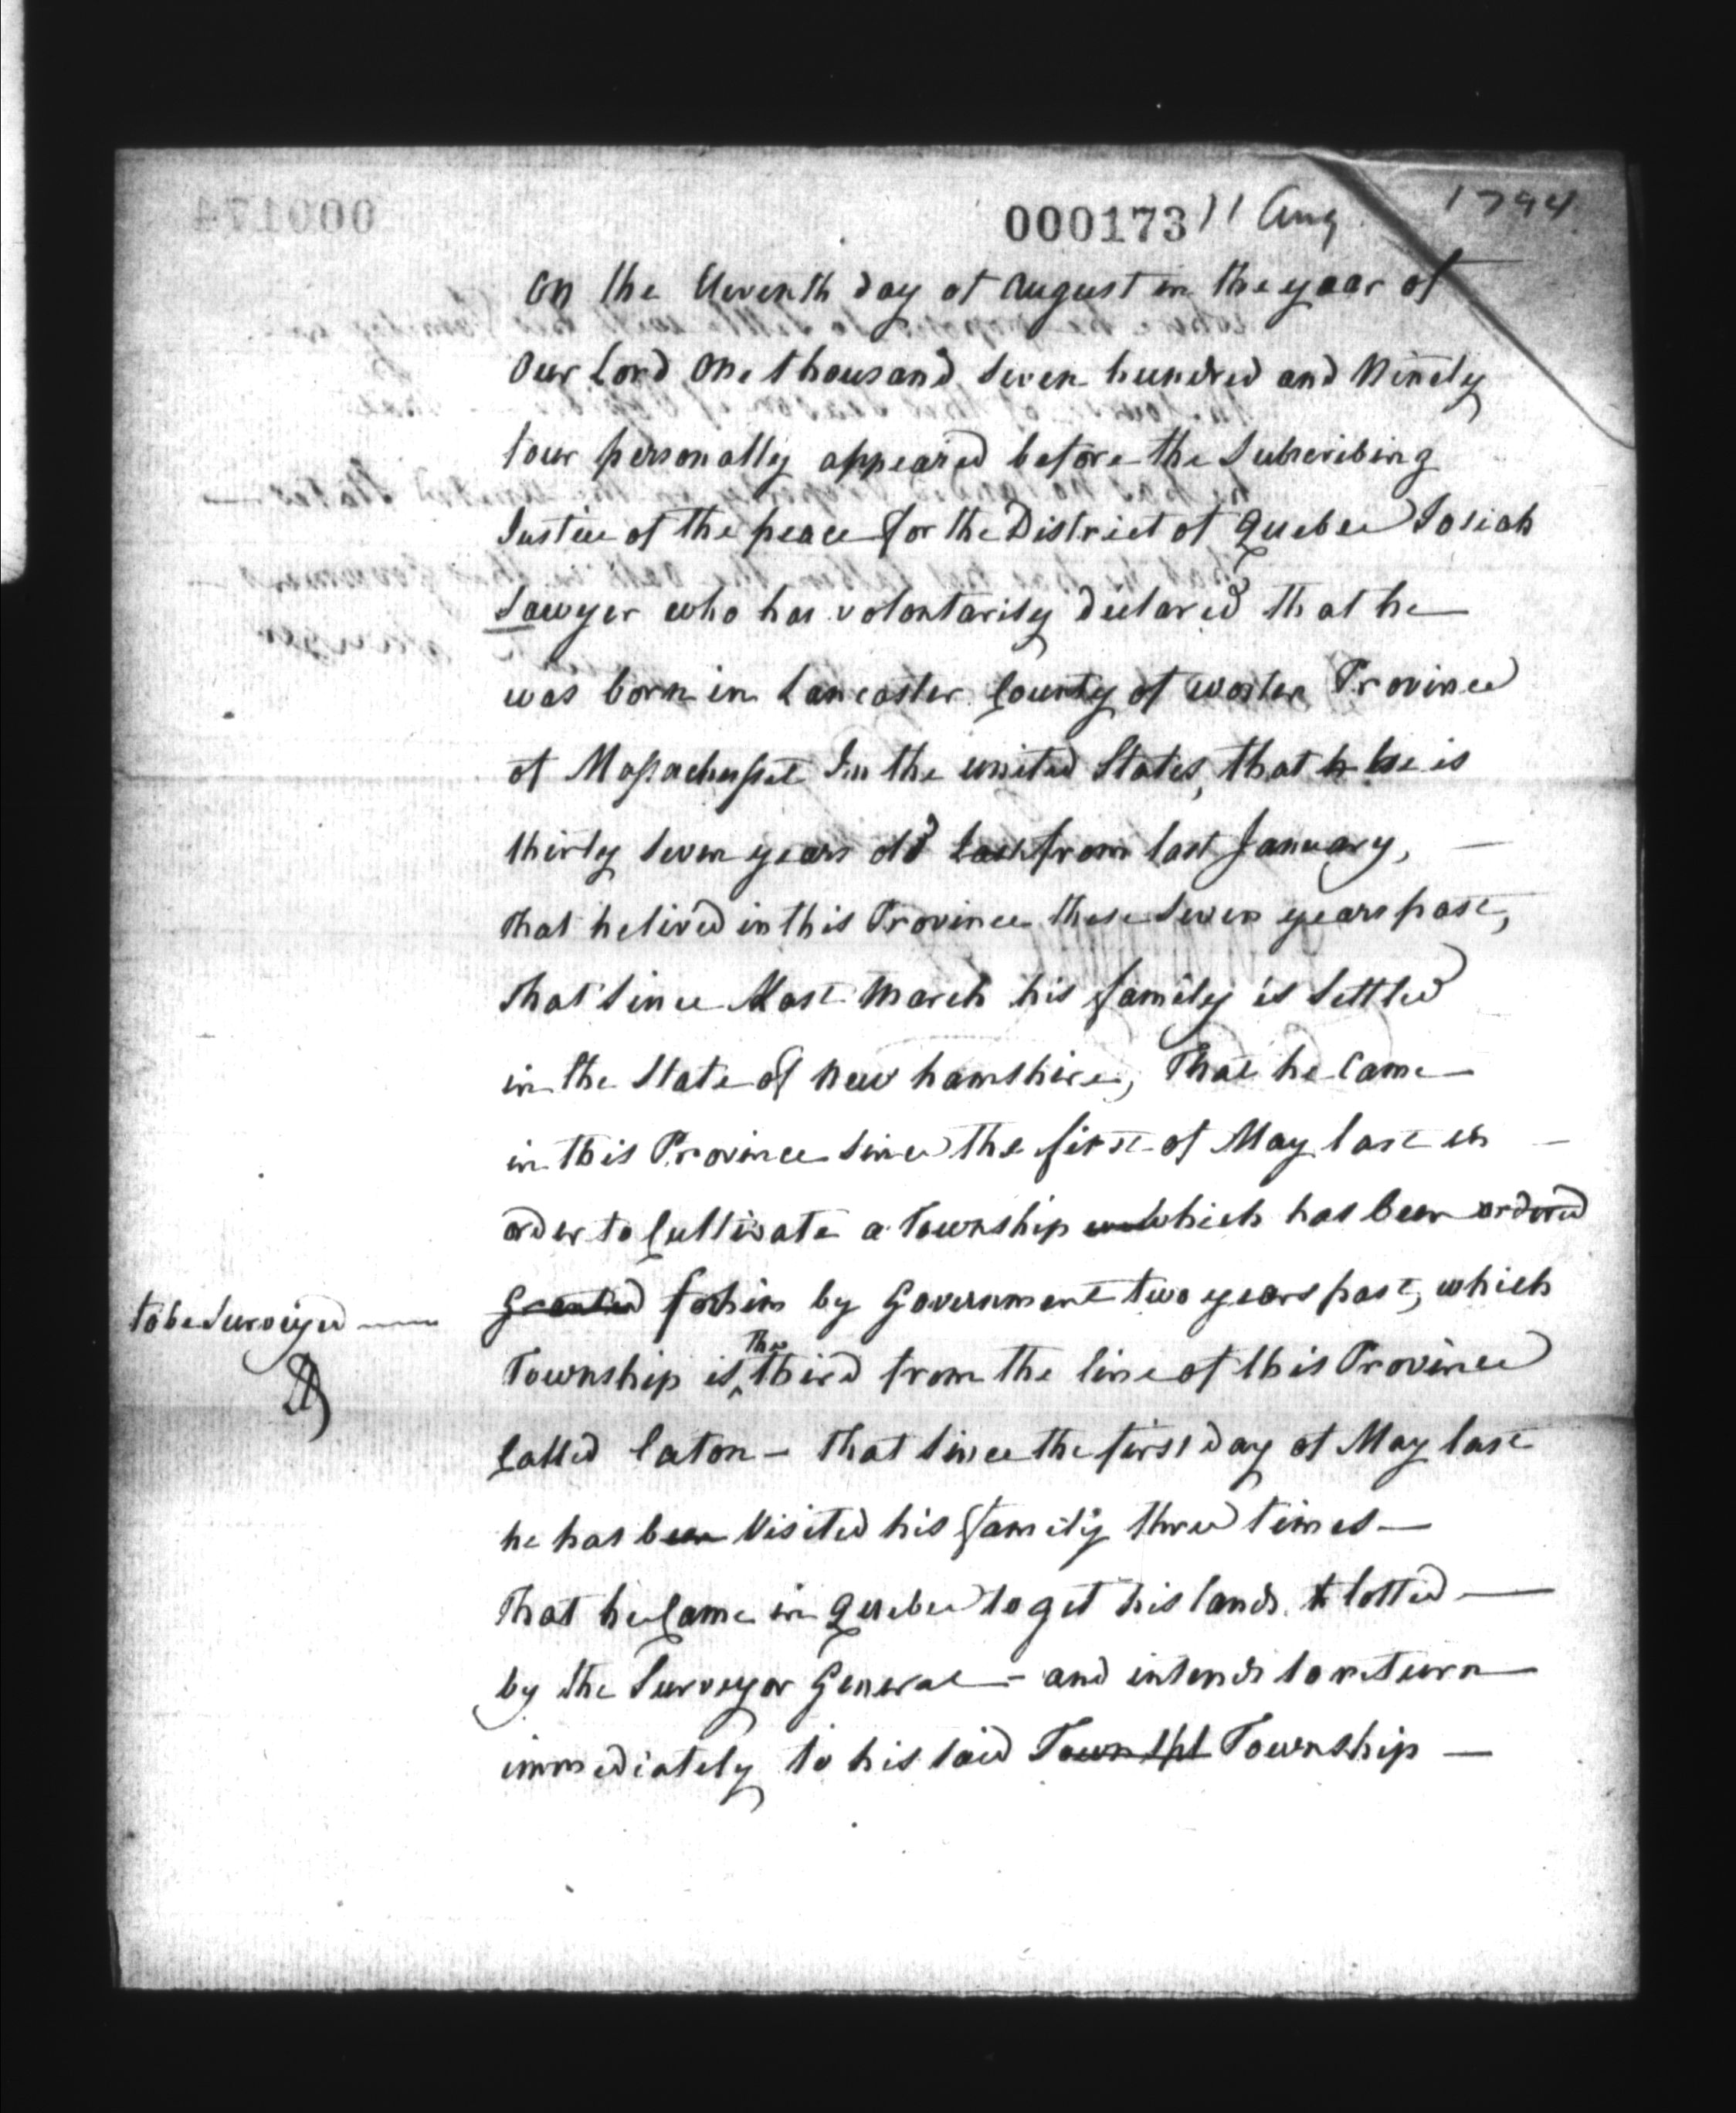 000173 11 Aug 1794
On the Eleventh day of August in the year of
Our Lord One thousand Seven hundred and Ninety
four personally appeared before the Subscribing
Justice of the peace for the District of Quebec Josiah
Sawyer who has volontarily declared that he
was born in Lancaster County of Worster Province
of Massachusset In the united States, that h he is
thirty Seven years old Last from last January,
that he lived in this Province these Seven years past,
that Since last March his family is Settled
in the State of New hamshire, That he Came
in this Province Since the first of May last in
order to Cultivate a Township which has been ordered
to be Surveyed
Granted for him by Government two years past, which
Township is The third from the line of this Province
Called Eaton - that Since the first day of May last
he has been Visited his family three times
That he Came in Quebec to get his lands lotted
by the Surveyor General - and intends to return
immediately to his said Townshp Township